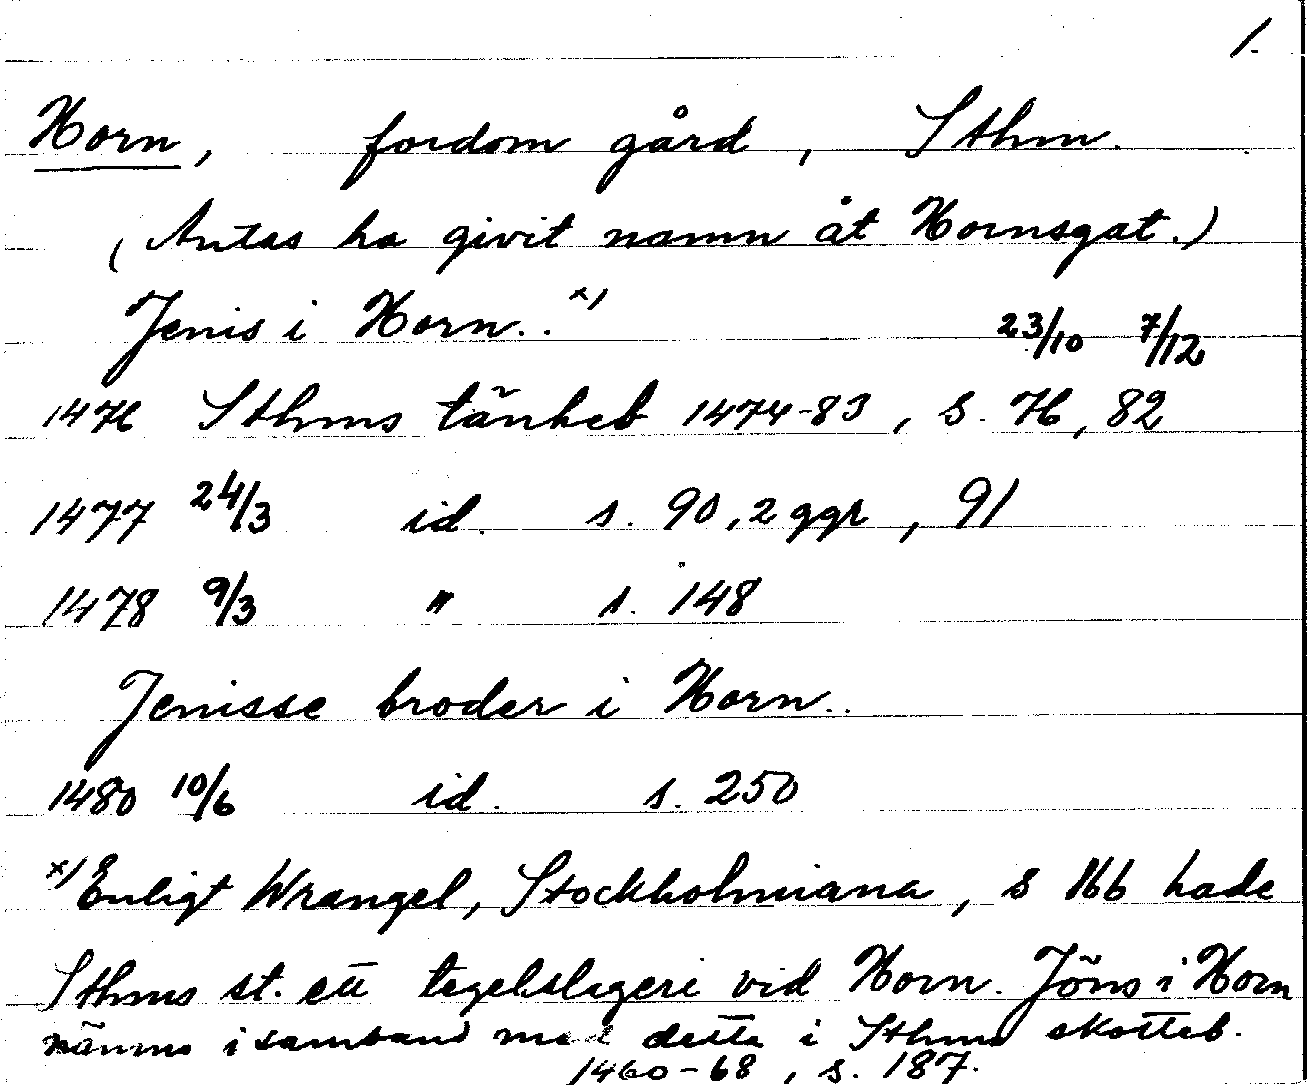 1.
Horn, fordom gård, Sthm.
(Antas ha givit namn åt Hornsgat.)
Jenis i Horn.. x)
23/10 7/12
1476 Sthms tänkeb 1474-83, s. 76, 82
1477 24/3 id. s. 90, 2 ggr, 91
1478 9/3 " s. 148
Jenisse broder i Horn..
1480 10/6 id. s. 250
x) Enligt Wrangel, Stockholmiana, s 166 hade
Sthms st. ett tegelslageri vid Horn. Jöns i Horn
nämns i samband med detta i Sthms skotteb.
1460-68, s. 187.